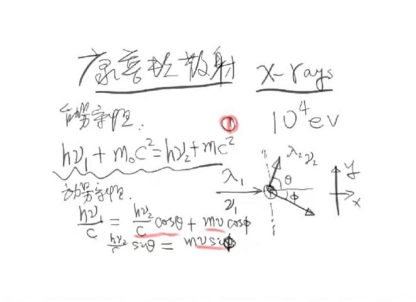 康普顿散射 x-rays
能量守恒. ① 10⁴ev
hν₁ + m₀c² = hν₂ + mc²
动量守恒.
hν₁/c = hν₂/c cosθ + mυ cosϕ
hν₂/c sinθ = mυ sinϕ
λ₁
ν₁
λ₂ ν₂
θ
ϕ
y
x